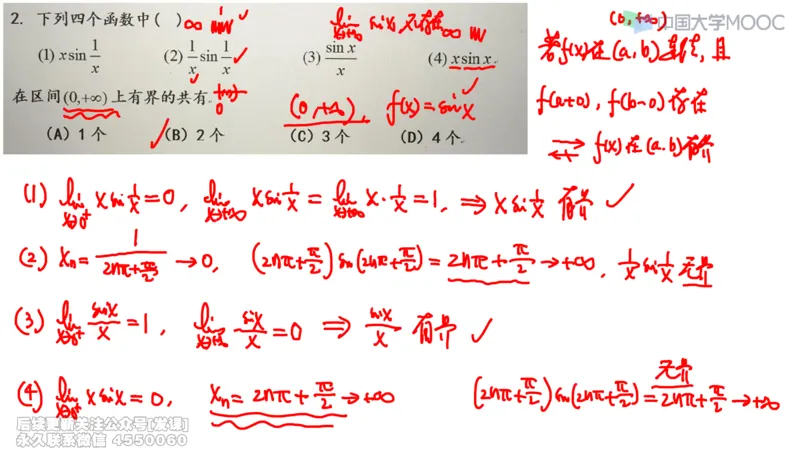 2. 下列四个函数中( )
(1) x sin 1/x (2) 1/x sin 1/x (3) sin x/x (4) x sin x
在区间(0,+∞)上有界的共有
(A) 1个 (B) 2个 (C) 3个 (D) 4个
lim x→+∞ sin x 不存在
(0,+∞), f(x) = sin x
(0,+∞)
中国大学MOOC
若f(x)在(a,b)连续, 且
f(a+0), f(b-0)存在
f(x)在(a,b)有界
(1) lim x→0⁺ x sin 1/x = 0, lim x→+∞ x sin 1/x = lim x→+∞ x · 1/x = 1, ⇒ x sin 1/x 有界 ✓
(2) xₙ = 1/(2nπ+π/2) → 0, (2nπ+π/2) sin(2nπ+π/2) = 2nπ+π/2 → +∞, 1/x sin 1/x 无界
(3) lim x→0⁺ sin x/x = 1, lim x→+∞ sin x/x = 0 ⇒ sin x/x 有界 ✓
(4) lim x→0⁺ x sin x = 0, xₙ = 2nπ+π/2 → +∞ (2nπ+π/2) sin(2nπ+π/2) = 2nπ+π/2 → +∞
无界
后续更新关注公众号[发课]
永久联系微信 4550060